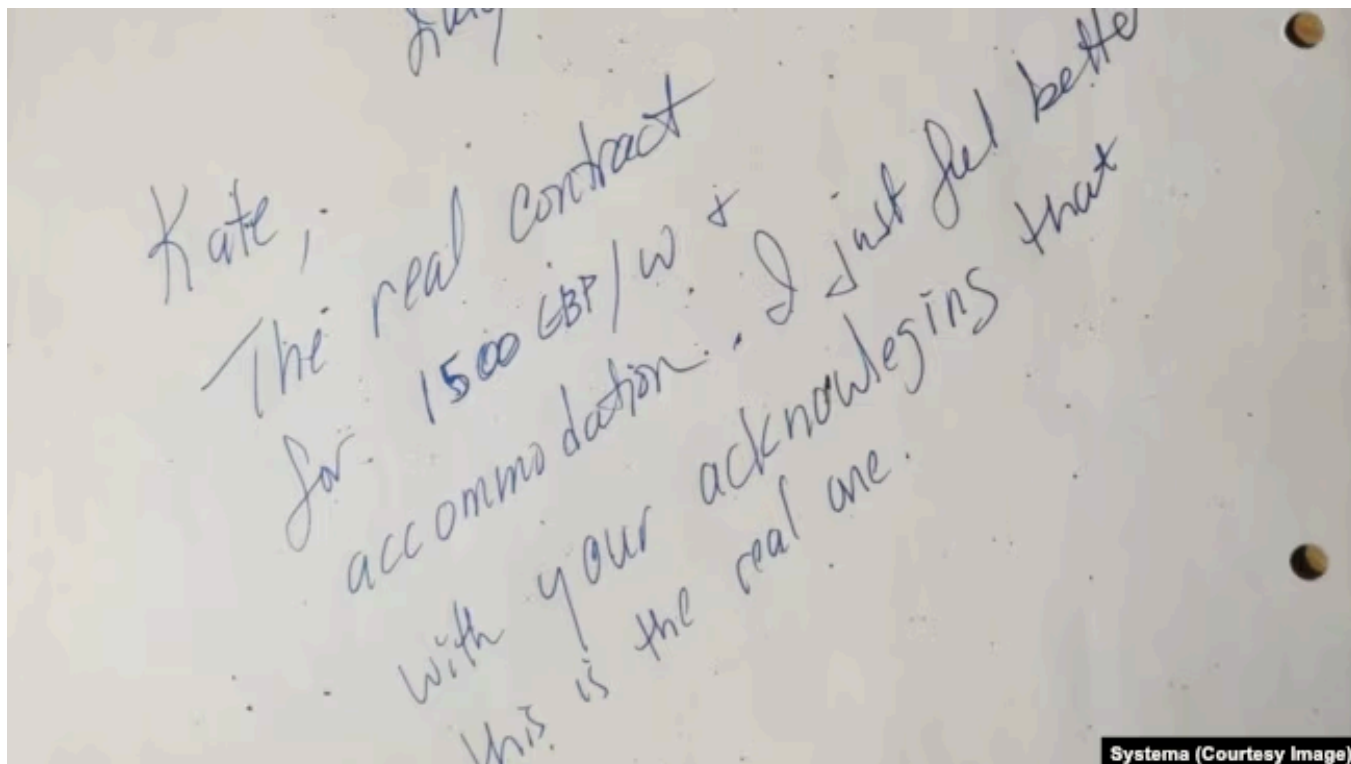 Kate,
The real contract
for 1500 GBP/W +
accommodation. I just feel better
with your acknowleging that
this is the real one.
Systema (Courtesy Image)